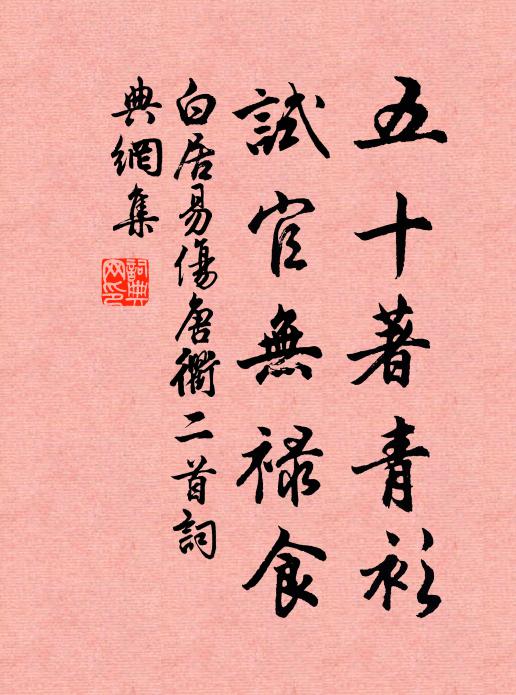 五十著青衫
試官無祿食
白居易傷唐衢二首詞
典網集
詞典網印